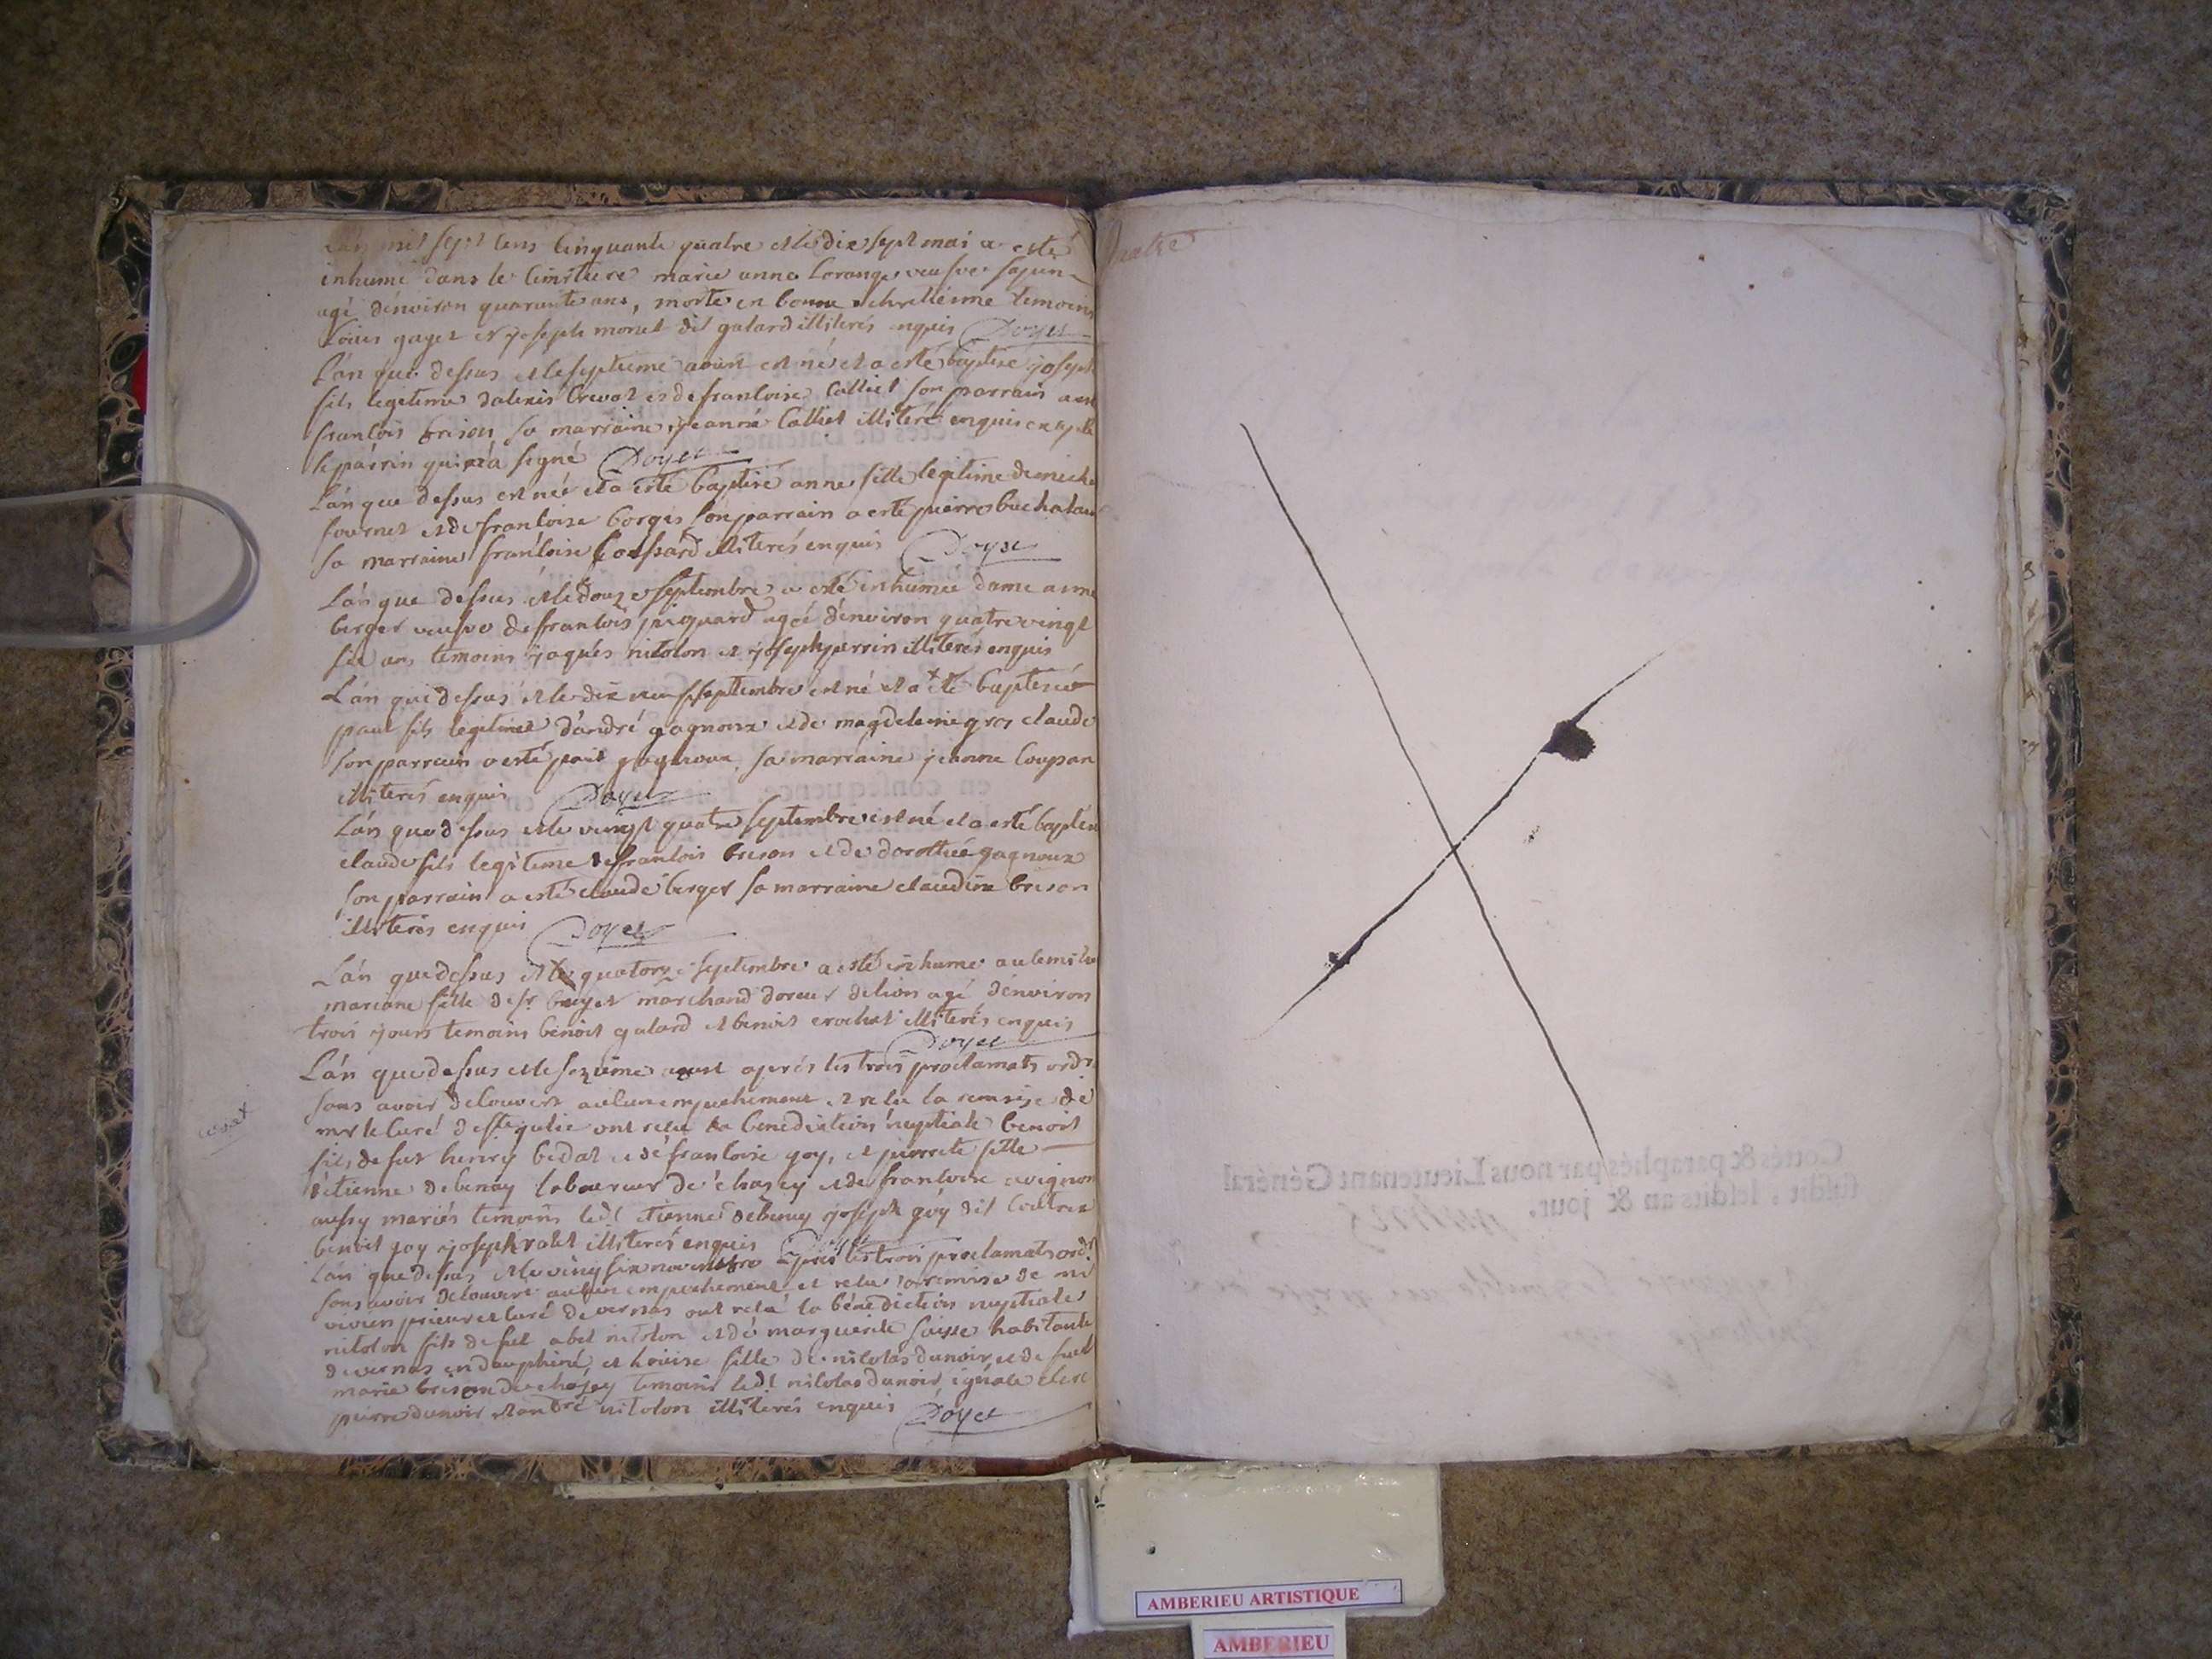 Lan mil sept cens cinquante quatre et le dix sept mai a esté
inhumé dans le cimitiere marie anne Lorange veufve
agé d'environ quarante ans, morte en bonne chretienne temoins
Louis gaget et joseph monet dit galard illiterés enquis Doyet
L'an que dessus et le septieme aoust est né et a esté baptisé joseph
fils legetime dalexis Crevat et de francoise Calliet son parrain a esté
francois brison sa marraine jeanne Calliet illiteré enquis excepté
le parrin qui a signé Doyet
L'an que dessus est née et a esté baptisé anne fille legitime de miche
fournet et de francoise borges son parrain a esté pierre buchalau
sa marraine francoise Coussard illiterés enquis Doyet
L'an que dessus et le douze septembre a esté inhumée dame anne
berger veufve de francois jacquard agée d'environ quatre vingt
six ans temoins jaques nitolon et joseph perrin illiterés enquis
L'an que dessus et le dix neuf septembre est né et a été baptisé
paul fils legitime d'andré gagnoux et de magdeleine gros claude
son parrain a esté paul gagnoux, sa marraine jeanne Coupan
illiterés enquis Doyet
L'an que dessus et le vingt quatre septembre est né et a esté baptisé
claude fils legitime de francois brison et de dorothée gagnoux
son parrain a esté claude berger sa marraine claudine brison
illiterés enquis Doyet
L'an que dessus et le quatorze septembre a esté inhumé au
mariane fille de sr. buyet marchand doreur de lion agé d'environ
trois jours temoins benoit galard et benoit crochet illiterés enquis
Doyet
L'an que dessus et le sezieme aoust après les trois proclamats ordr
sans avoir decouvert aulcun empechement et recu la remise de
mr le Curé de ste julie ont recu la benediction nuptiale benoit
fils de fut henry bedat et de francoise goy, et pierrete fille
d'etienne debenay laboureur de chazey et de francoise avignon
aussy mariés temoins ledt etienne debenay joseph goy dit
benoit goy joseph rolet illiterés enquis Doyet
L'an que dessus et le vingt six novembre après les trois proclamats ordr
sans avoir decouvert aulcun empechement et recu la remise de mr
vivien prieur et curé de vernas ont recu la bénédiction nuptiale
nitolon fils de fut abel nitolon et de marguerite Suisse habitants
de vernas en dauphiné, et Louise fille de nicolas dunoir et de fut
marie brison de chazey temoins ledt nicolas dunoir, clerc
pierre dunoir et andré nitolon illiterés enquis Doyet
quatre
Cottés & paraphés par nous Lieutenant Général
susdit, lesdits an & jour.
AMBERIEU ARTISTIQUE
AMBERIEU